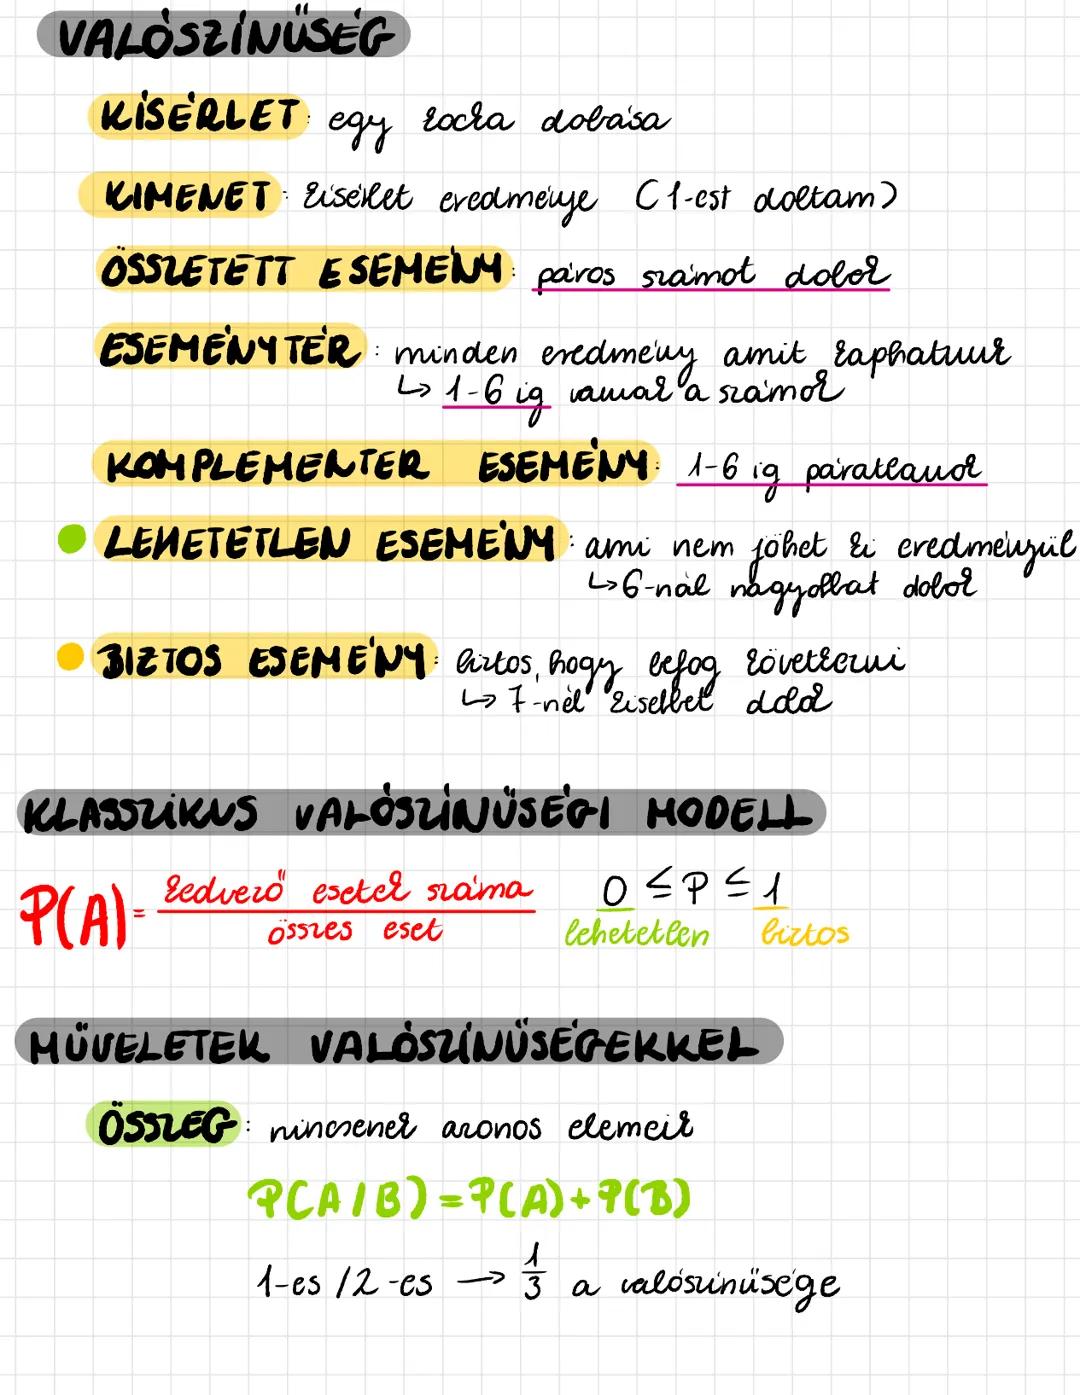 VALÓSZÍNŰSÉG
KÍSÉRLET: egy kocka dobása
KIMENET: kísérlet eredménye (1-est dobtam)
ÖSSZETETT ESEMÉNY: páros számot dobok
ESEMÉNYTÉR: minden eredmény amit kaphatunk
↳ 1-6 ig vannak a számok
KOMPLEMENTER ESEMÉNY: 1-6 ig páratlanok
LEHETETLEN ESEMÉNY: ami nem jöhet ki eredményül
↳ 6-nál nagyobbat dobok
BIZTOS ESEMÉNY: biztos, hogy befog következni
↳ 7-nél kisebbet dobok
KLASSZIKUS VALÓSZÍNŰSÉGI MODELL
P(A) = kedvező esetek száma / összes eset 0 ≤ P ≤ 1
lehetetlen biztos
MŰVELETEK VALÓSZÍNŰSÉGEKKEL
ÖSSZEG: nincsenek azonos elemeik
P(A/B) = P(A) + P(B)
1-es /2-es → 1/3 a valószínűsége